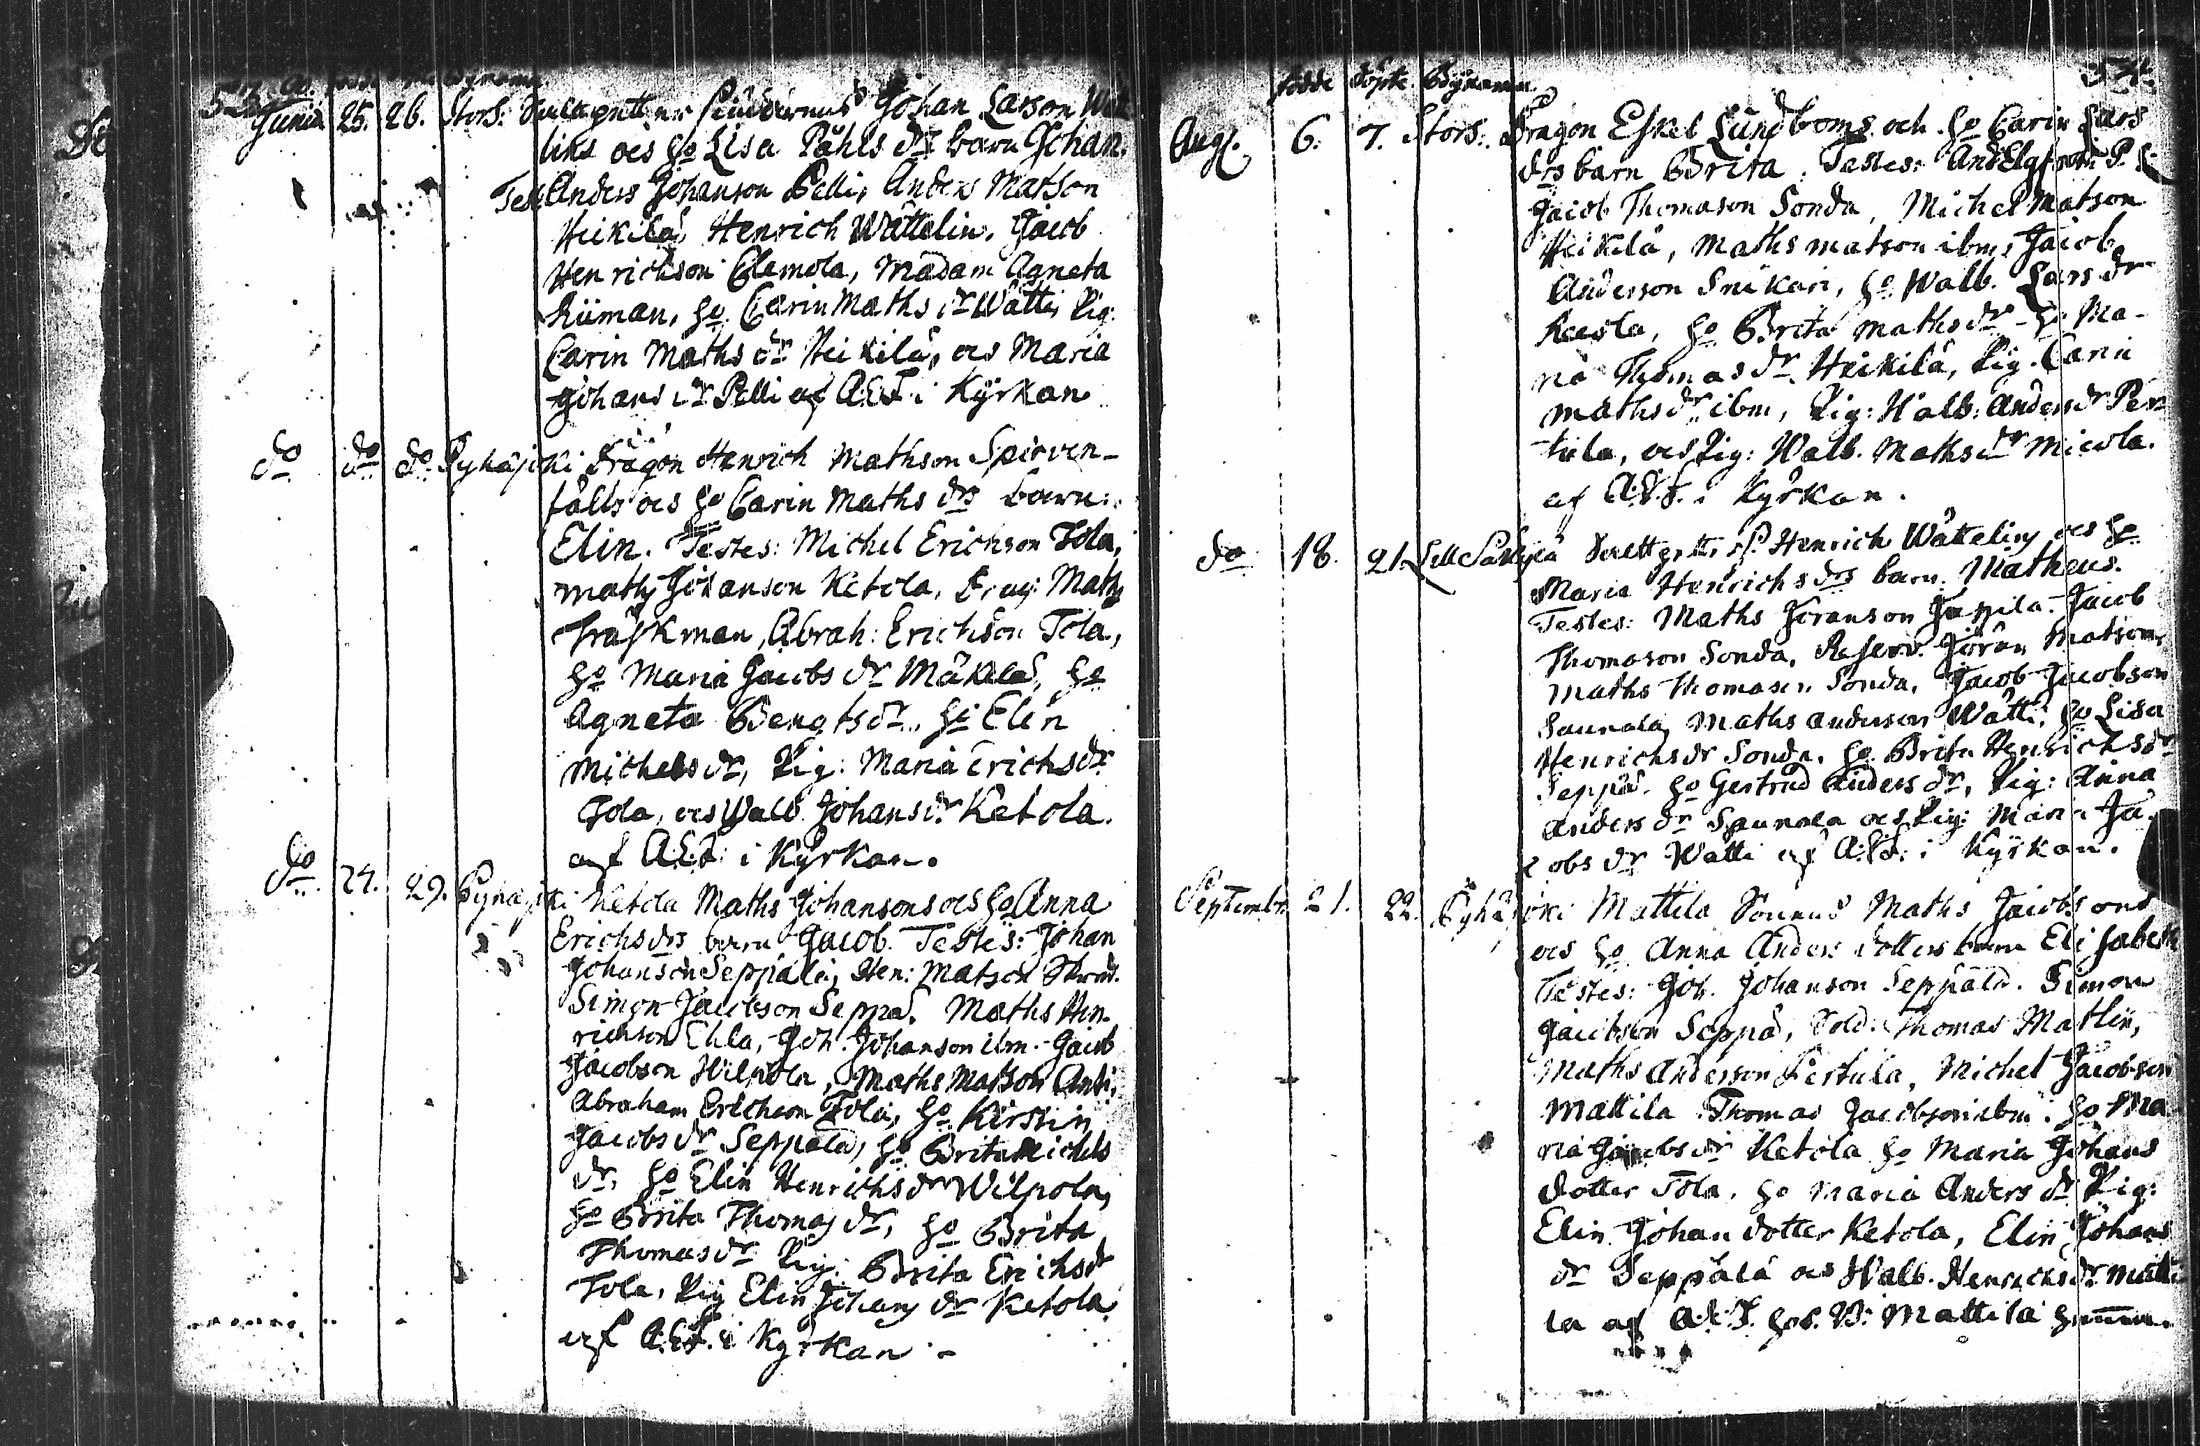 Junii 25. 26. Stors: Johan Larson
lins ocs ho Lisa Påhls drs barn Johan.
Test Anders Johanson Pelli, Anders Matson
Heikilä, Henrich Wättelin, Jacob
Henrichson Clemola, Madam Agneta
ho Carin Maths dr Wätti, Pig:
Carin Maths dr Heikilä, ocs Maria
Johans dr Pelli af A.E.F. i Kyrkan
do do do Pyhäjoki Dragon Henrich Mathson Spirven-
fälts ocs ho Carin Maths drs barn:
Elin. Testes: Michel Erichson Tola,
Maths Johanson Ketola, Drag: Maths
Träskman, Abrah: Erichson Tola,
ho Maria Jacobs dr Mäkelä, ho
Agneta Bengts dr, ho Elin
Michels dr, Pig: Maria Erichs dr
Tola, ocs Walb. Johans dr Ketola.
af A.E.F. i Kyrkan.
do. 24. 29. Pyhäjoki Ketola Maths Johansons ocs ho Anna
Erichs drs barn Jacob. Testes: Johan
Johanson Seppälä, Hen: Matson
Simon Jacobson Seppä, Maths Hen-
richson Ehla, Joh. Johanson ibm. Jacob
Jacobson Wilpola, Maths Matson Anti,
Abraham Erichson Tola, ho Kirstin
Jacobs dr Seppälä, ho Brita Michels
dr, ho Elin Henrichs dr Wilpola,
ho Brita Thomas dr, ho Brita
Thomas dr Pig: Brita Erichs dr
Tola, Pig Elin Johans dr Ketola
af A.E.F. i Kyrkan.-
födde döpte Bynamn 54.
Aug. 6. 7. Stors: Dragon Eskel Lundboms och ho Carin Lars
drs barn Brita. Testes:
Jacob Thomason Sonda, Michel Matson
Heikilä, Maths Matson ibm, Jacob
Anderson Snikari, ho Walb. Lars dr
ho Brita Maths dr - ho Ma-
ria Thomas dr Heikilä, Pig. Carin
Maths dr ibm, Pig: Walb: Anders dr Per-
tula, ocs Pig: Walb. Maths dr Micola.
af A.E.F. i Kyrkan.
do 18. 21. Henrich Wättelins ocs ho
Maria Henrichs drs barn Matheus.
Testes: Maths Jöranson Jacob
Thomason Sonda, Reserv. Jöran Matson,
Maths Thomason Sonda, Jacob Jacobson
Saunala, Maths Anderson Wätti, ho Lisa
Henrichs dr Sonda, ho Brita Henrichs dr
Seppä. ho Gertrud Anders dr, Pig: Anna
Anders dr Saunala ocs Pig: Maria Ja-
cobs dr Wätti af A.E.F. i Kyrkan.
Septembr. 21. 22. Pyhäjoki Mattila Sonens Maths Jacobsons
ocs ho Anna Anders dotters barn Elisabeth
Testes: Joh. Johanson Seppälä. Simon
Jacobson Seppä, Sold. Thomas Matlin,
Maths Anderson Pertula, Michel Jacobson
Mattila Thomas Jacobson ibm: ho Ma-
ria Jacobs dr Ketola ho Maria Johans
dotter Tola, ho Maria Anders dr Pig:
Elin Johan dotter Ketola, Elin Johans
dr Seppälä ocs Walb. Henrichs dr Matti-
la af A.E.F. Mattila